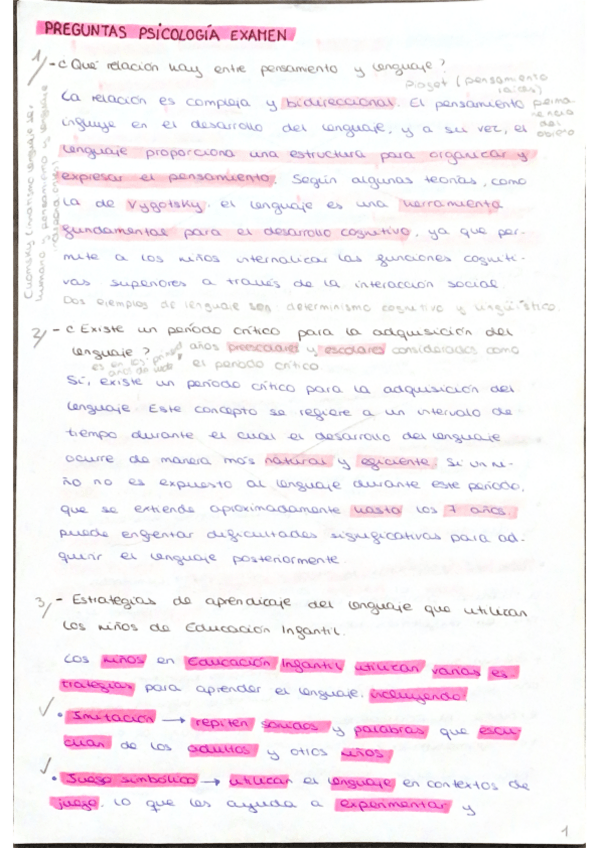 PREGUNTAS PSICOLOGÍA EXAMEN
1/-¿Qué relación hay entre pensamiento y lenguaje?
Piaget (pensamiento
La relación es compleja y bidireccional. El pensamiento
influye en el desarrollo del lenguaje, y a su vez, el
lenguaje proporciona una estructura para organizar y
expresar el pensamiento. Según algunas teorías, como
la de Vygotsky, el lenguaje es una herramienta
fundamental para el desarrollo cognitivo, ya que per-
mite a los niños internalizar las funciones cogniti-
vas superiores a través de la interacción social.
Dos ejemplos de lenguaje son: determinismo cognitivo y lingüístico.
2/-¿Existe un período crítico para la adquisición del
lenguaje? años preescolares y escolares considerados como
el período crítico
Sí, existe un período crítico para la adquisición del
lenguaje. Este concepto se refiere a un intervalo de
tiempo durante el cual el desarrollo del lenguaje
ocurre de manera más natural y eficiente. Si un ni-
ño no es expuesto al lenguaje durante este período,
que se extiende aproximadamente hasta los 7 años,
puede enfrentar dificultades significativas para ad-
quirir el lenguaje posteriormente.
3/- Estrategias de aprendizaje del lenguaje que utilizan
los niños de Educación Infantil.
Los niños en Educación Infantil utilizan varias es-
trategias para aprender el lenguaje, incluyendo:
✓• Imitación → repiten sonidos y palabras que escu-
chan de los adultos y otros niños
✓• Juego simbólico → utilizan el lenguaje en contextos de
juego, lo que les ayuda a experimentar y
1